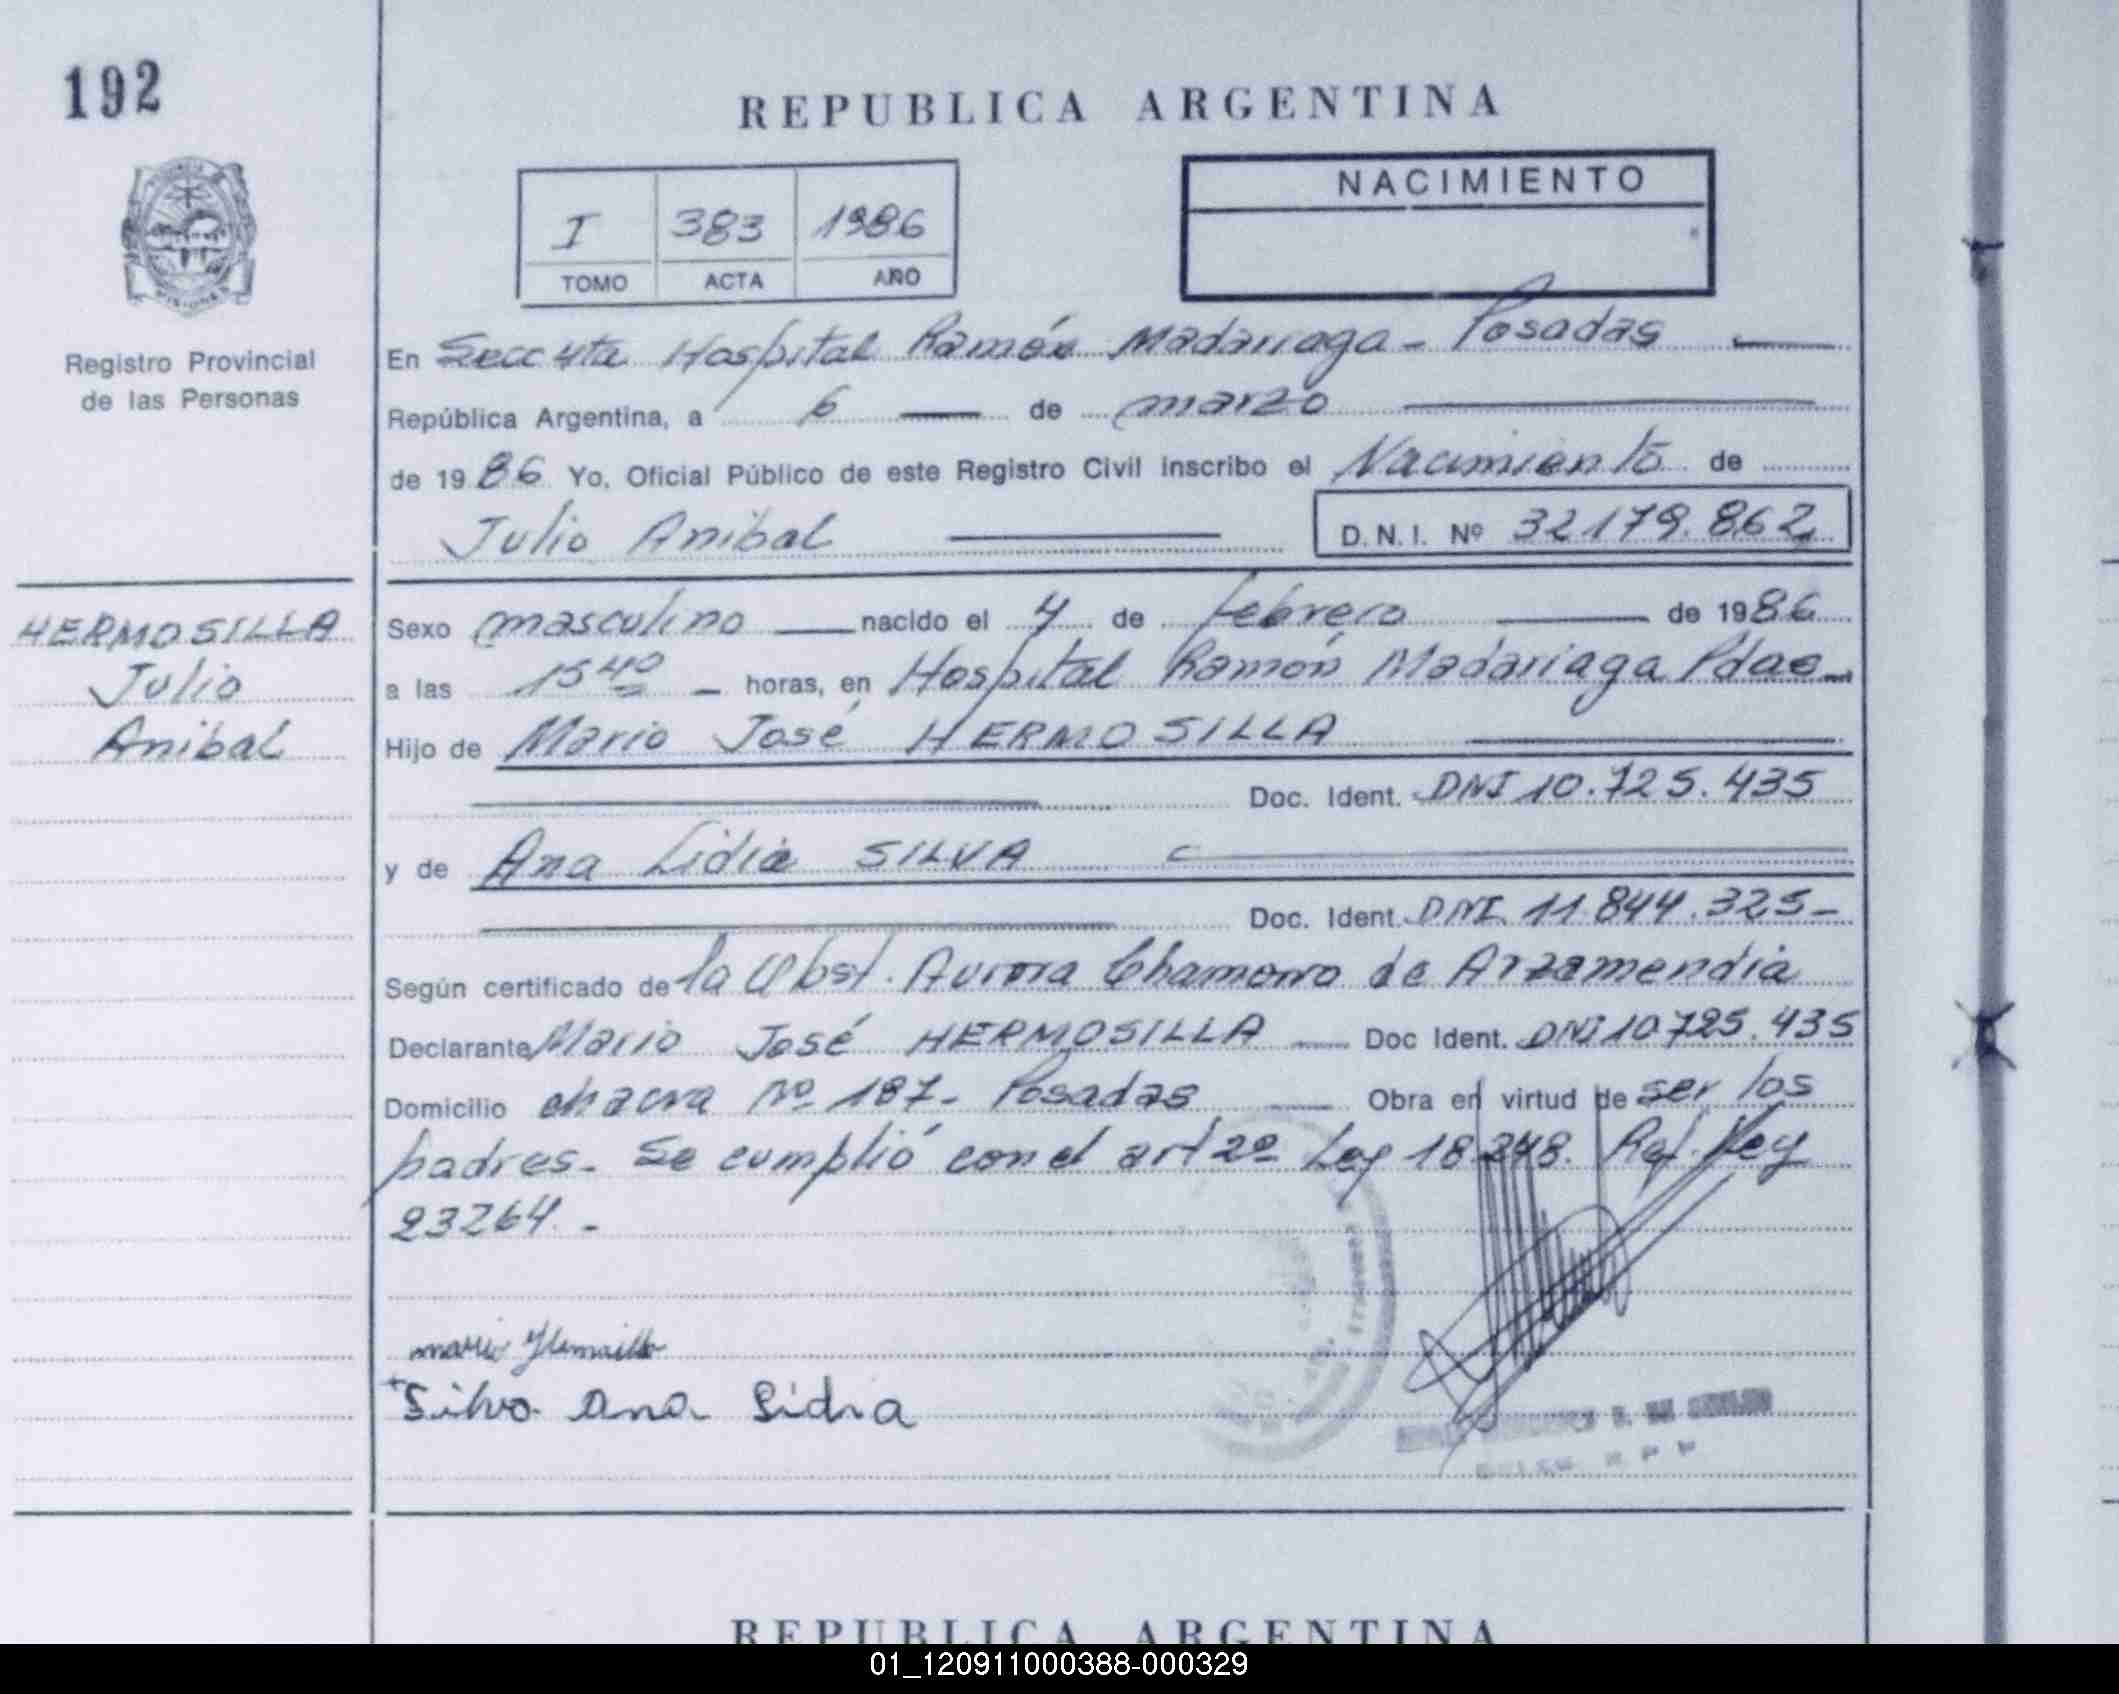 192
REPUBLICA ARGENTINA
NACIMIENTO
I 383 1986
TOMO ACTA AÑO
Registro Provincial
de las Personas
En Secc 4ta Hospital Ramón Madariaga - Posadas
República Argentina, a 6 de marzo
de 1986 Yo, Oficial Público de este Registro Civil inscribo el Nacimiento de
Julio Anibal D.N.I. Nº 32179.862
HERMOSILLA
Julio
Anibal
Sexo masculino nacido el 4 de febrero de 1986
a las 15 40 horas, en Hospital Ramón Madariaga Pdas
Hijo de Mario José HERMOSILLA
Doc. Ident. DNI 10.725.435
y de Ana Lidia SILVA
Doc. Ident. DNI 11.844.325-
Según certificado de la Obst. Aurora Chamorro de Arzamendia
Declarante Mario José HERMOSILLA Doc Ident. DNI 10725.435
Domicilio chacra Nº 187- Posadas Obra en virtud de ser los
padres. Se cumplió con el art 2º Ley 18.248. Ref. Ley
23264.-
Silva Ana Lidia
REPUBLICA ARGENTINA
01_120911000388-000329